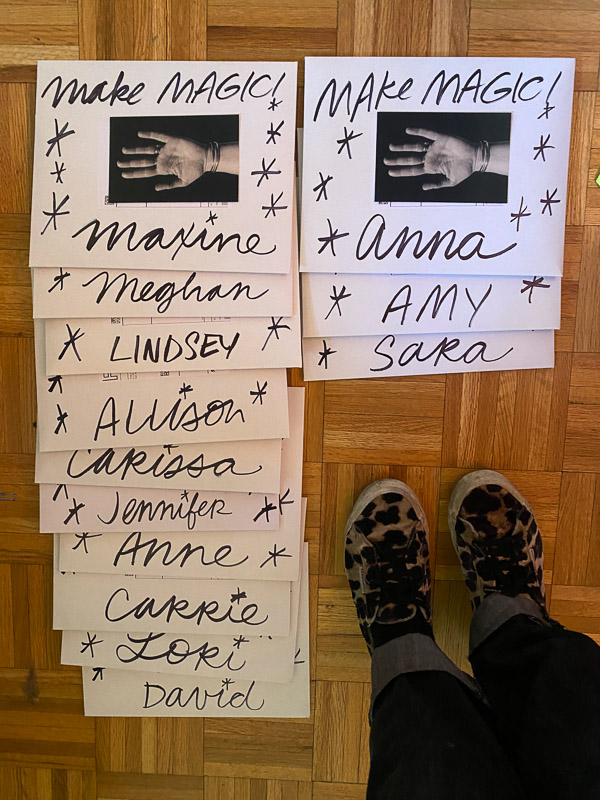 make MAGIC!
maxine
Meghan
LINDSEY
ALLISON
CARISSA
Jennifer
Anne
Carrie
Lori
David
MAke MAGIC!
anna
AMY
SaRa